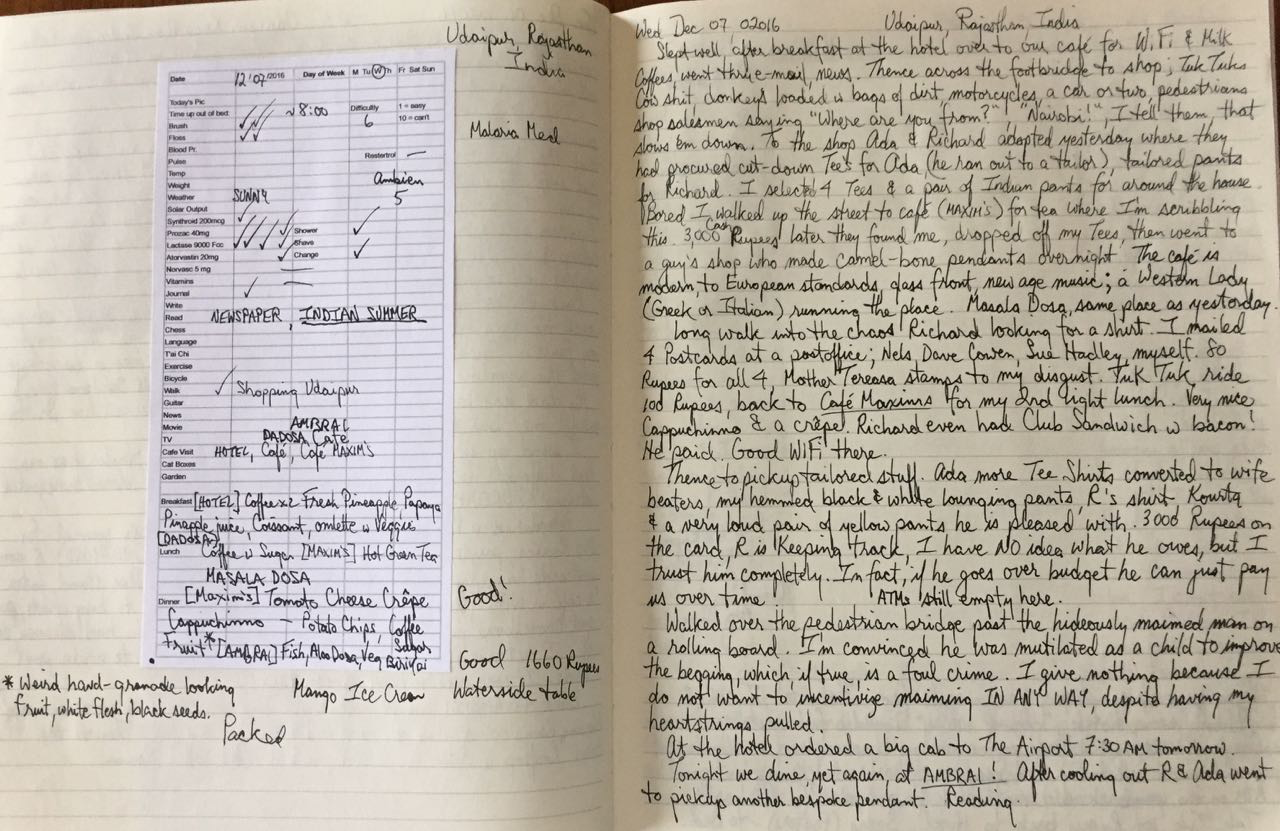 Udaipur, Rajasthan
India
Date 12/07/2016 Day of Week M Tu W Th Fr Sat Sun
Today's Pic
Time up out of bed: ~8:00 Difficulty 1 = easy
Brush 6 10 = can't
Floss
Malaria Med
Blood Pr.
Pulse Restertrol —
Temp
Weight Ambien
Weather SUNNY 5
Solar Output
Synthroid 200mcg
Prozac 40mg Shower
Lactase 9000 Fcc Shave
Atorvastin 20mg Change
Norvasc 5 mg
Vitamins
Journal
Write
Read NEWSPAPER, INDIAN SUMMER
Chess
Language
T'ai Chi
Exercise
Bicycle
Walk Shopping Udaipur
Guitar
News
Movie AMBRAI
TV DADOSA Cafe
Cafe Visit HOTEL, Café, Café MAXIM'S
Cat Boxes
Garden
Breakfast [HOTEL] Coffee x2 Fresh Pineapple, Papaya
Pinapple juice, Coissant, omlette w Veggie
[DADOSA]
Lunch Coffee w Sugar [MAXIM'S] Hot Green Tea
MASALA DOSA
Dinner [Maxim's] Tomato Cheese Crêpe Good!
Cappuchinno — Potato Chips, Coffee
Sugar
Fruit* [AMBRAI] Fish, Aloo Dosa, Veg Biriyai Good 1660 Rupees
* Weird hand-grenade looking Mango Ice Cream Waterside table
fruit, white flesh, black seeds.
Packed
Wed Dec 07, 02016 Udaipur, Rajasthan, India
Slept well, after breakfast at the hotel over to our café for WiFi & Milk
Coffees, went thru e-mail, news. Thence across the footbridge to shop; Tuk Tuks
Cow shit, donkeys loaded w bags of dirt, motorcycles, a car or two, pedestrians
shop salesmen saying "Where are you from?", "Nairobi!", I tell them, that
slows em down. To the shop Ada & Richard adopted yesterday where they
had procured cut-down Tee's for Ada (he ran out to a tailor), tailored pants
for Richard. I selected 4 Tees & a pair of Indian pants for around the house.
Bored I walked up the street to café (MAXIM'S) for tea where I'm scribbling
this. 3,000 Cash Rupees later they found me, dropped off my Tees, then went to
a guy's shop who made camel-bone pendants overnight. The café is
modern, to European standards, glass front, new age music; a Western Lady
(Greek or Italian) running the place. Masala Dosa, same place as yesterday.
Long walk into the chaos Richard looking for a shirt. I mailed
4 Postcards at a postoffice; Nels, Dave Cowen, Sue Hadley, myself. 80
Rupees for all 4, Mother Tereasa stamps to my disgust. Tuk Tuk ride
100 Rupees, back to Café Maxims for my 2nd light lunch. Very nice
Cappuchinno & a crêpe. Richard even had Club Sandwich w bacon!
He paid. Good WiFi there.
Thence to pickup tailored stuff. Ada more Tee Shirts converted to wife
beaters, my hemmed black & white lounging pants, R's shirt - Kourta
& a very loud pair of yellow pants he is pleased with. 3000 Rupees on
the card, R is Keeping track, I have NO idea what he owes, but I
trust him completely. In fact, if he goes over budget he can just pay
us over time. ATMs still empty here.
Walked over the pedestrian bridge past the hideously maimed man on
a rolling board. I'm convinced he was mutilated as a child to improve
the begging, which, if true, is a foul crime. I give nothing because I
do not want to incentivize maiming IN ANY WAY, despite having my
heartstrings pulled.
At the hotel ordered a big cab to The Airport 7:30 AM tomorrow.
Tonight we dine, yet again, at AMBRAI! After cooling out R & Ada went
to pickup another bespoke pendant. Reading.